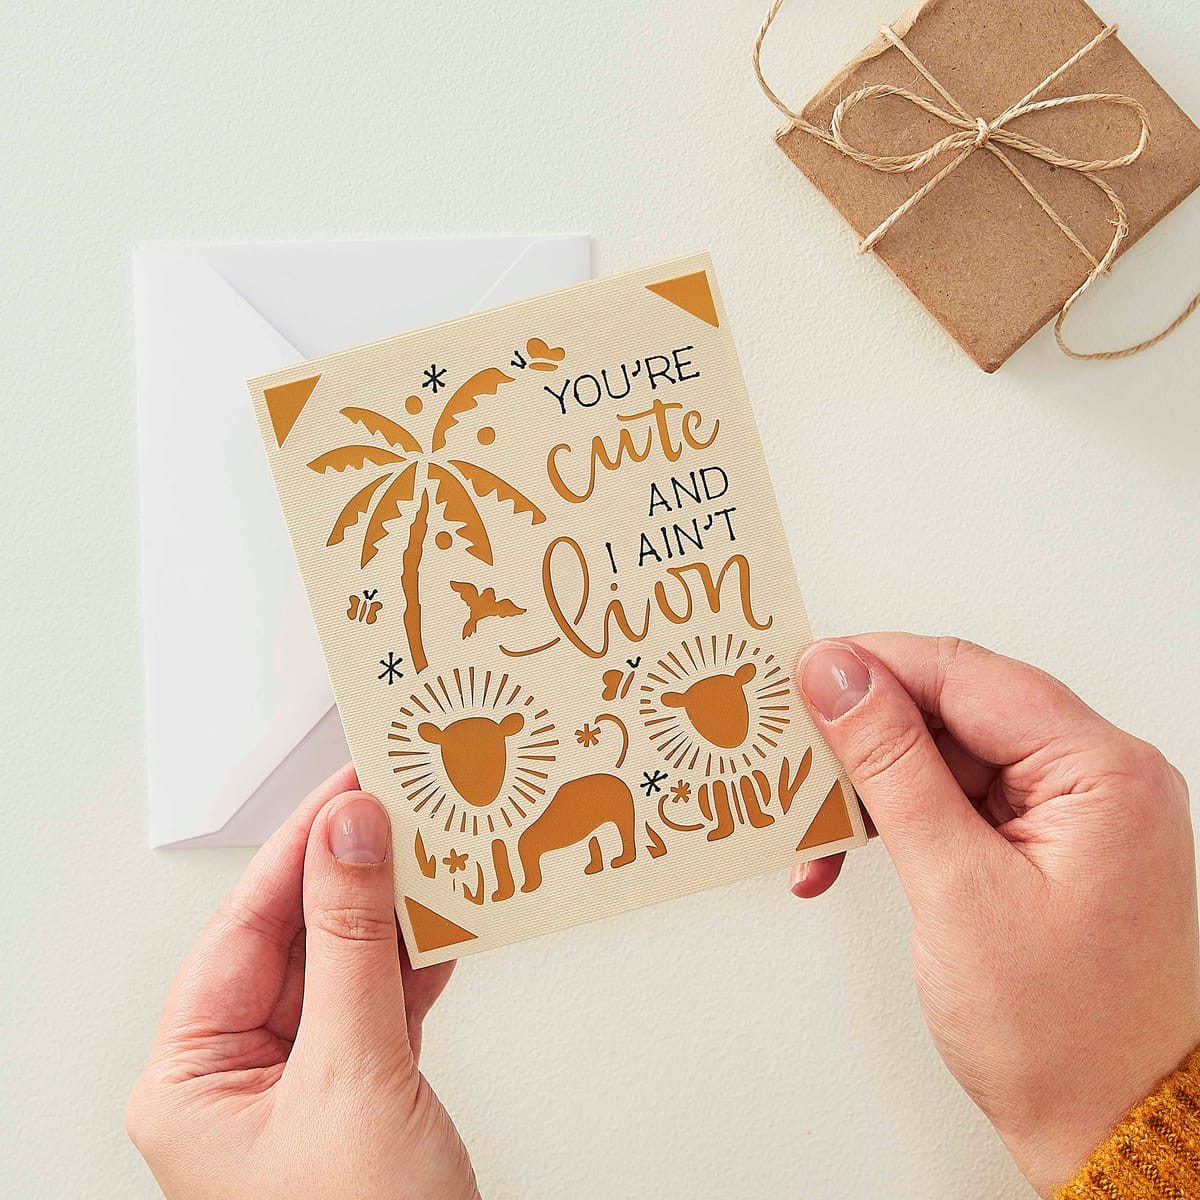 YOU'RE
cute
AND
I AIN'T
lion